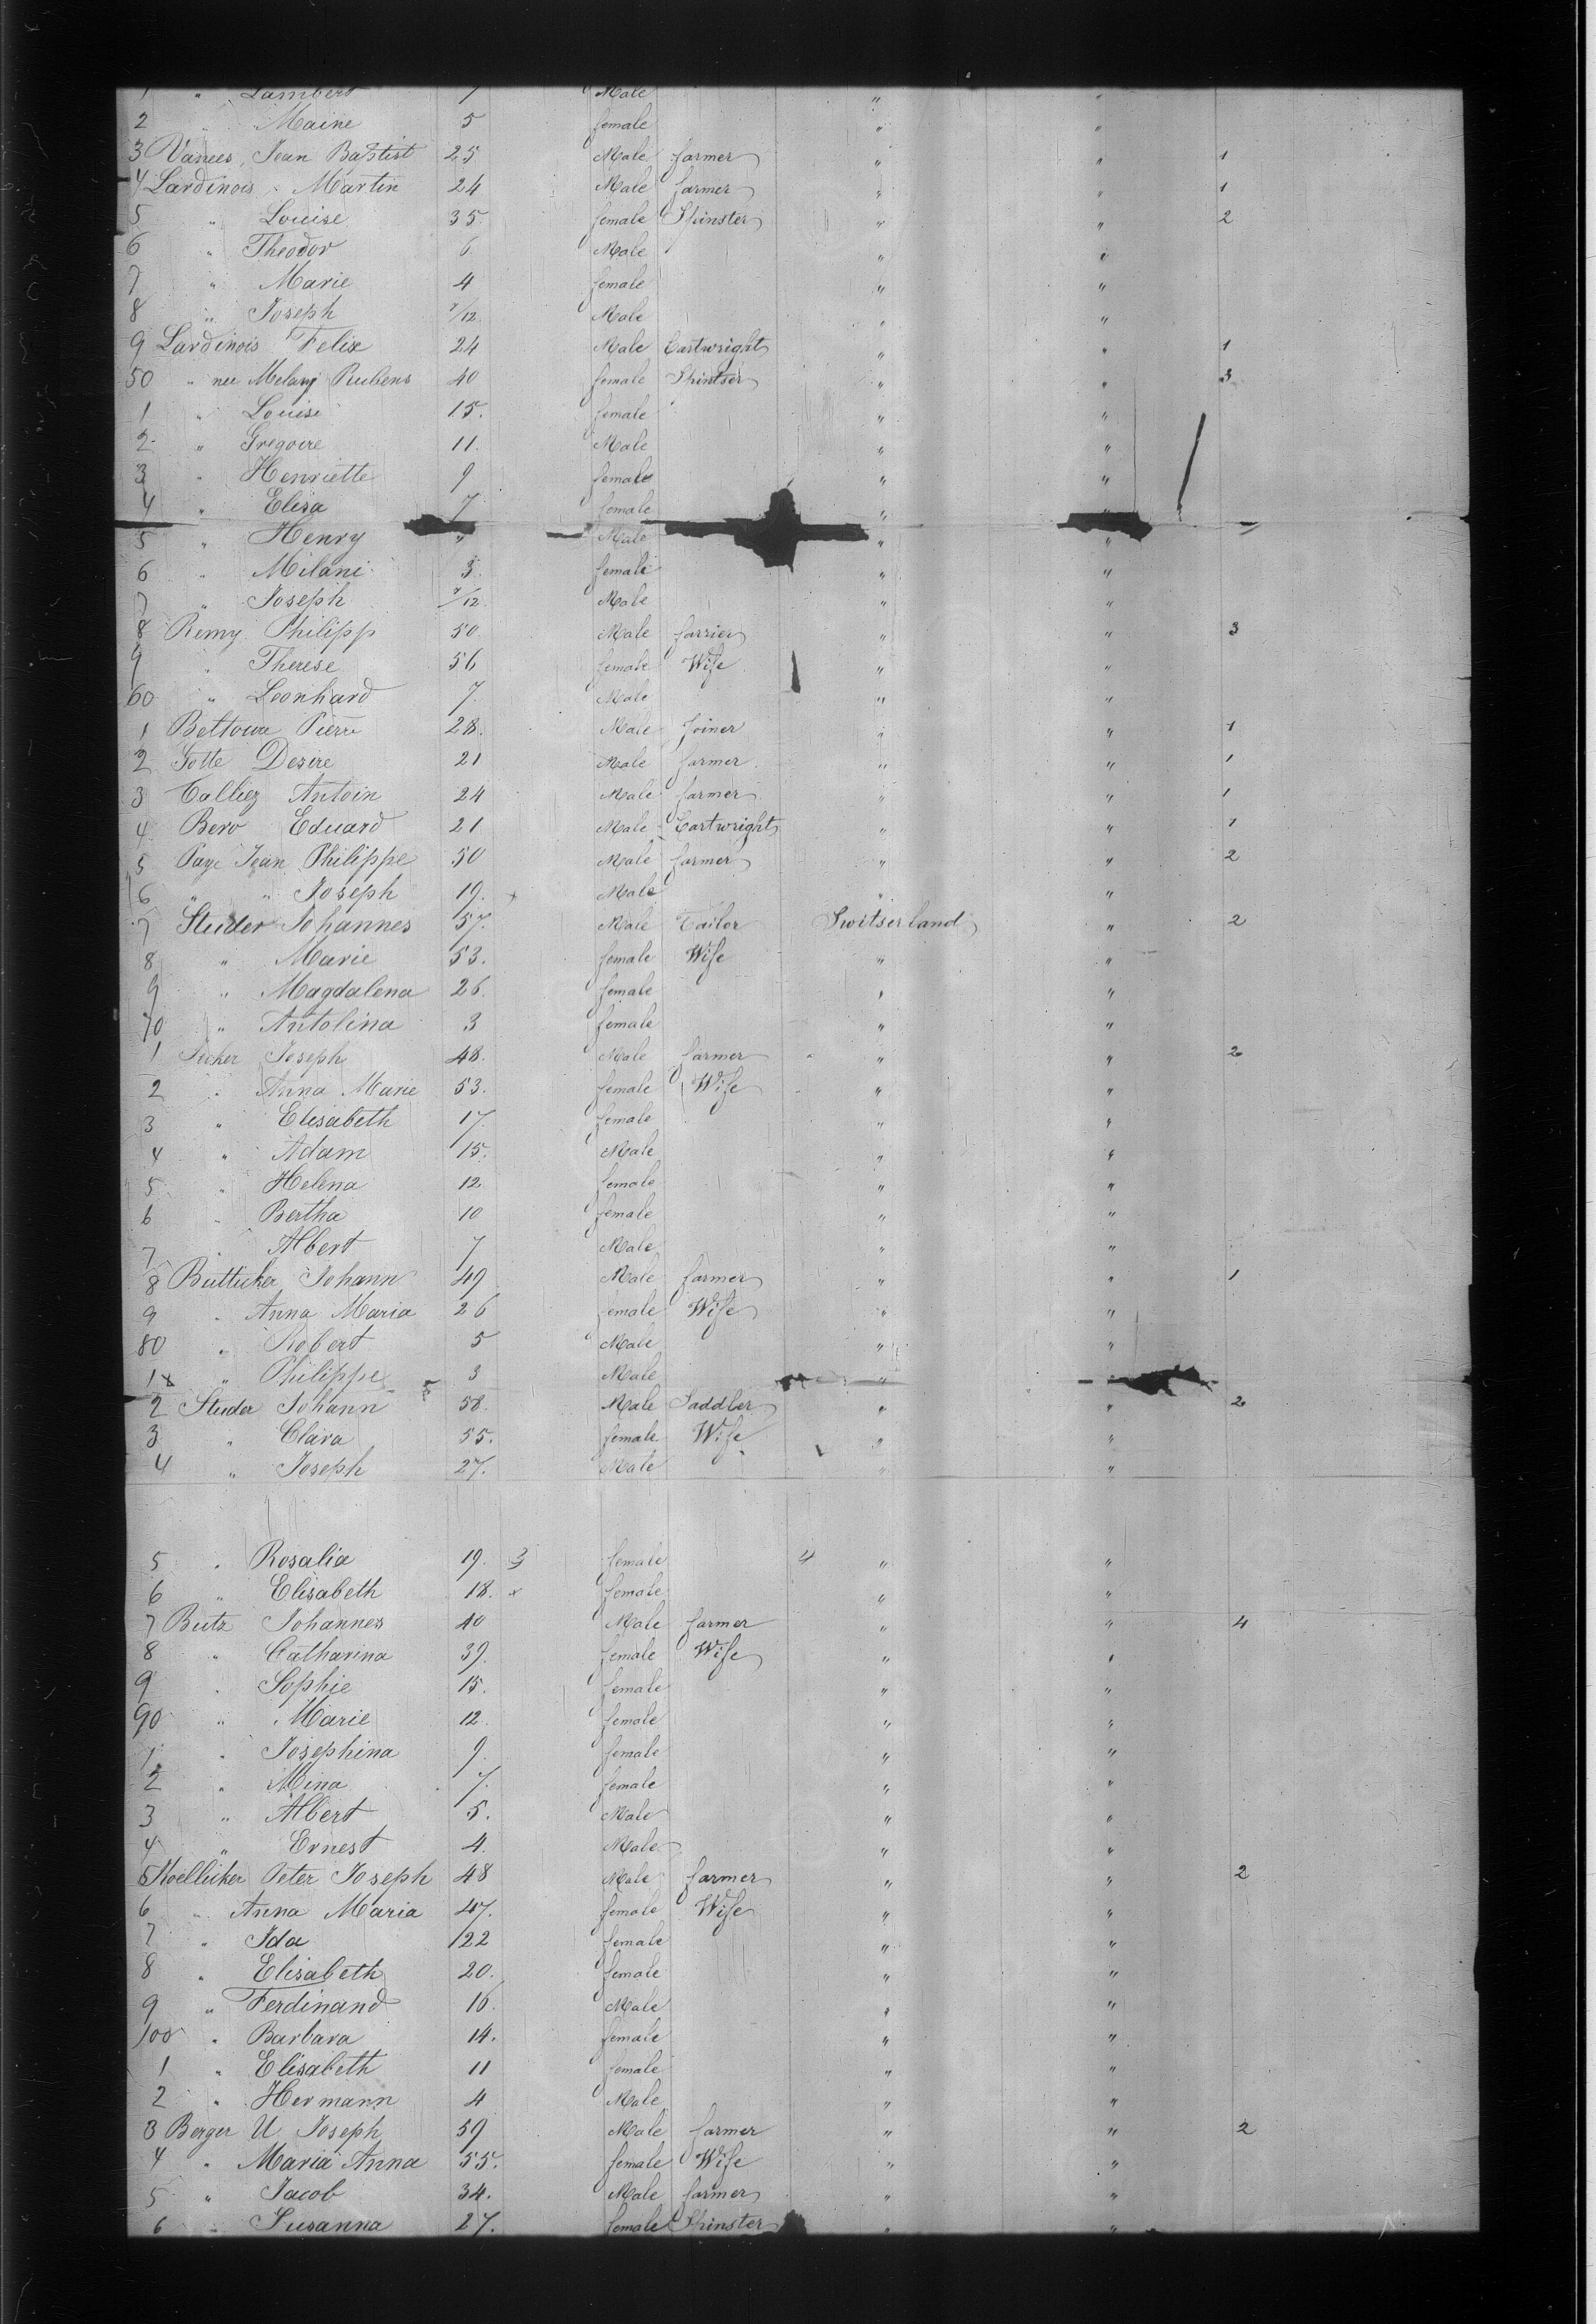 1 " Lambert 7 Male " "
2 " Maine 5 female " "
3 Vanees, Jean Batist 25 Male farmer " " 1
4 Lardinois Martin 24 Male farmer " " 1
5 " Louise 35 female Spinster " " 2
6 " Theodor 6 Male " "
7 " Marie 4 female " "
8 " Joseph /12 Male " "
9 Lardinois Felix 24 Male Cartwright " " 1
50 " nee Melany Rubens 40 female Spintser " " 3
1 " Louise 15. female " "
2 " Gregoire 11. Male " "
3 " Henriette 9 female " "
4 " Elisa 7 female " "
5 " Henry " Male " "
6 " Milani 3. female " "
7 " Joseph /12 Male " "
8 Remy Philipp 50 Male farrier " " 3
9 " Therese 56 female Wife " "
60 " Leonhard 7. Male " "
1 Pierre 28. Male Joiner " " 1
2 Gotte Desire 21 Male farmer " " 1
3 Calliez Antoin 24 Male farmer " " 1
4 Bero Eduard 21 Male Cartwright " " 1
5 Page Jean Philippe 50 Male farmer " " 2
6 " " Joseph 19. x Male " "
7 Studer Johannes 57. Male Tailor Switserland " 2
8 " Marie 53. female Wife " "
9 " Magdalena 26. female " "
70 " Antolina 3 female " "
1 Joseph 48. Male farmer " " 2
2 " Anna Marie 53. female Wife " "
3 " Elisabeth 17. female " "
4 " Adam 15. Male " "
5 " Helena 12 female " "
6 " Bertha 10 female " "
7 " Albert 7 Male " "
8 Butticker Johann 49 Male farmer " " 1
9 " Anna Maria 26 female Wife " "
80 " Robert 5 Male " "
1x " Philippe 3 Male "
2 Studer Johann 58. Male Saddler " " 2
3 " Clara 55. female Wife " "
4 " Joseph 27. Male " "
5 " Rosalia 19. 3 female 4 " "
6 " Elisabeth 18. x female " "
7 Butz Johannes 40 Male farmer " " 4
8 " Catharina 39. female Wife " "
9 " Sophie 15. female " "
90 " Marie 12. female " "
1 " Josephina 9. female " "
2 " Mina 7. female " "
3 " Albert 5. Male " "
4 " Ernest 4. Male " "
Moellicker Peter Joseph 48 Male farmer " " 2
6 " Anna Maria 47. female Wife " "
7 " Ida 122 female " "
8 " Elisabeth 20. female " "
9 " Ferdinand 16. Male " "
100 " Barbara 14. female " "
1 " Elisabeth 11 female " "
2 " Hermann 4 Male " "
3 Berger U. Joseph 59 Male farmer " " 2
4 " Maria Anna 55. female Wife " "
5 " Jacob 34. Male farmer " "
6 " Susanna 27. female Spinster " "